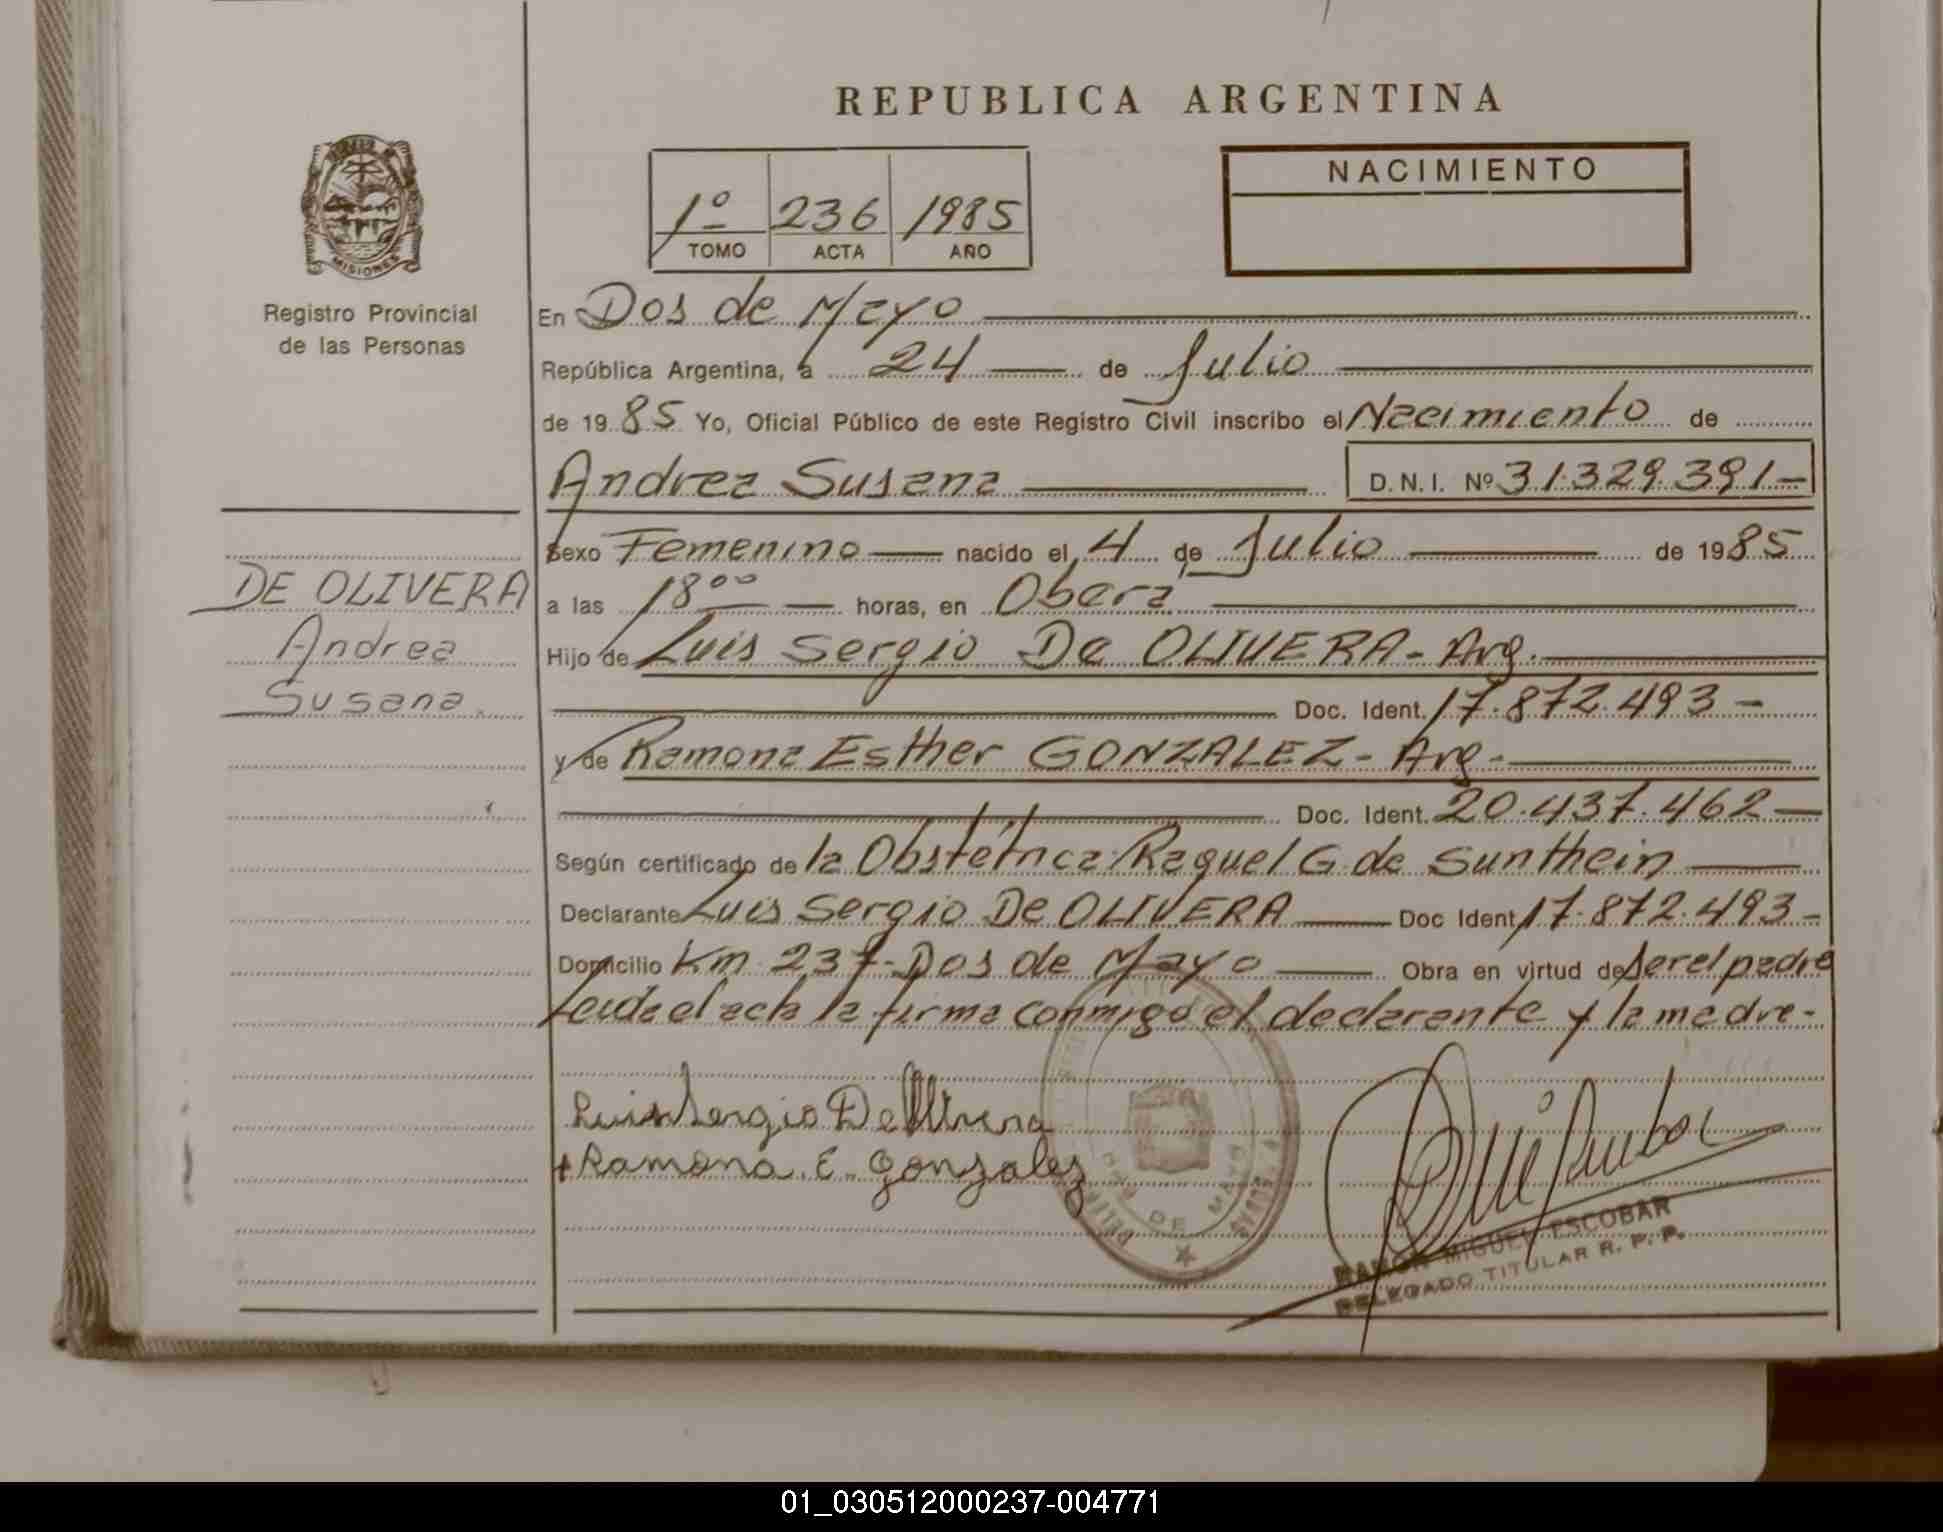 REPUBLICA ARGENTINA
NACIMIENTO
1º 236 1985
TOMO ACTA AÑO
MISIONES
Registro Provincial
de las Personas
En Dos de Mayo
República Argentina, a 24 de Julio
de 1985 Yo, Oficial Público de este Registro Civil inscribo el Nacimiento de
Andrea Susana D.N.I. Nº 31.329.391-
Sexo Femenino nacido el 4 de Julio de 1985
DE OLIVERA
Andrea
Susana.
a las 18⁰⁰ horas, en Oberá
Hijo de Luis Sergio De OLIVERA- Arg.
Doc. Ident. 17.872.493-
y de Ramona Esther GONZALEZ- Arg-
Doc. Ident. 20.437.462-
Según certificado de la Obstétrica Raquel G. de Sunthein
Declarante Luis Sergio De OLIVERA Doc Ident 17.872.493-
Domicilio Km 237-Dos de Mayo Obra en virtud de Ser el padre
Leida el acta la firma conmigo el declarante y la madre-
Luis Sergio De Olivera
Ramona. E. Gonzalez
DOS DE MAYO
RAMON MIGUEL ESCOBAR
DELEGADO TITULAR R. P. P.
01_030512000237-004771